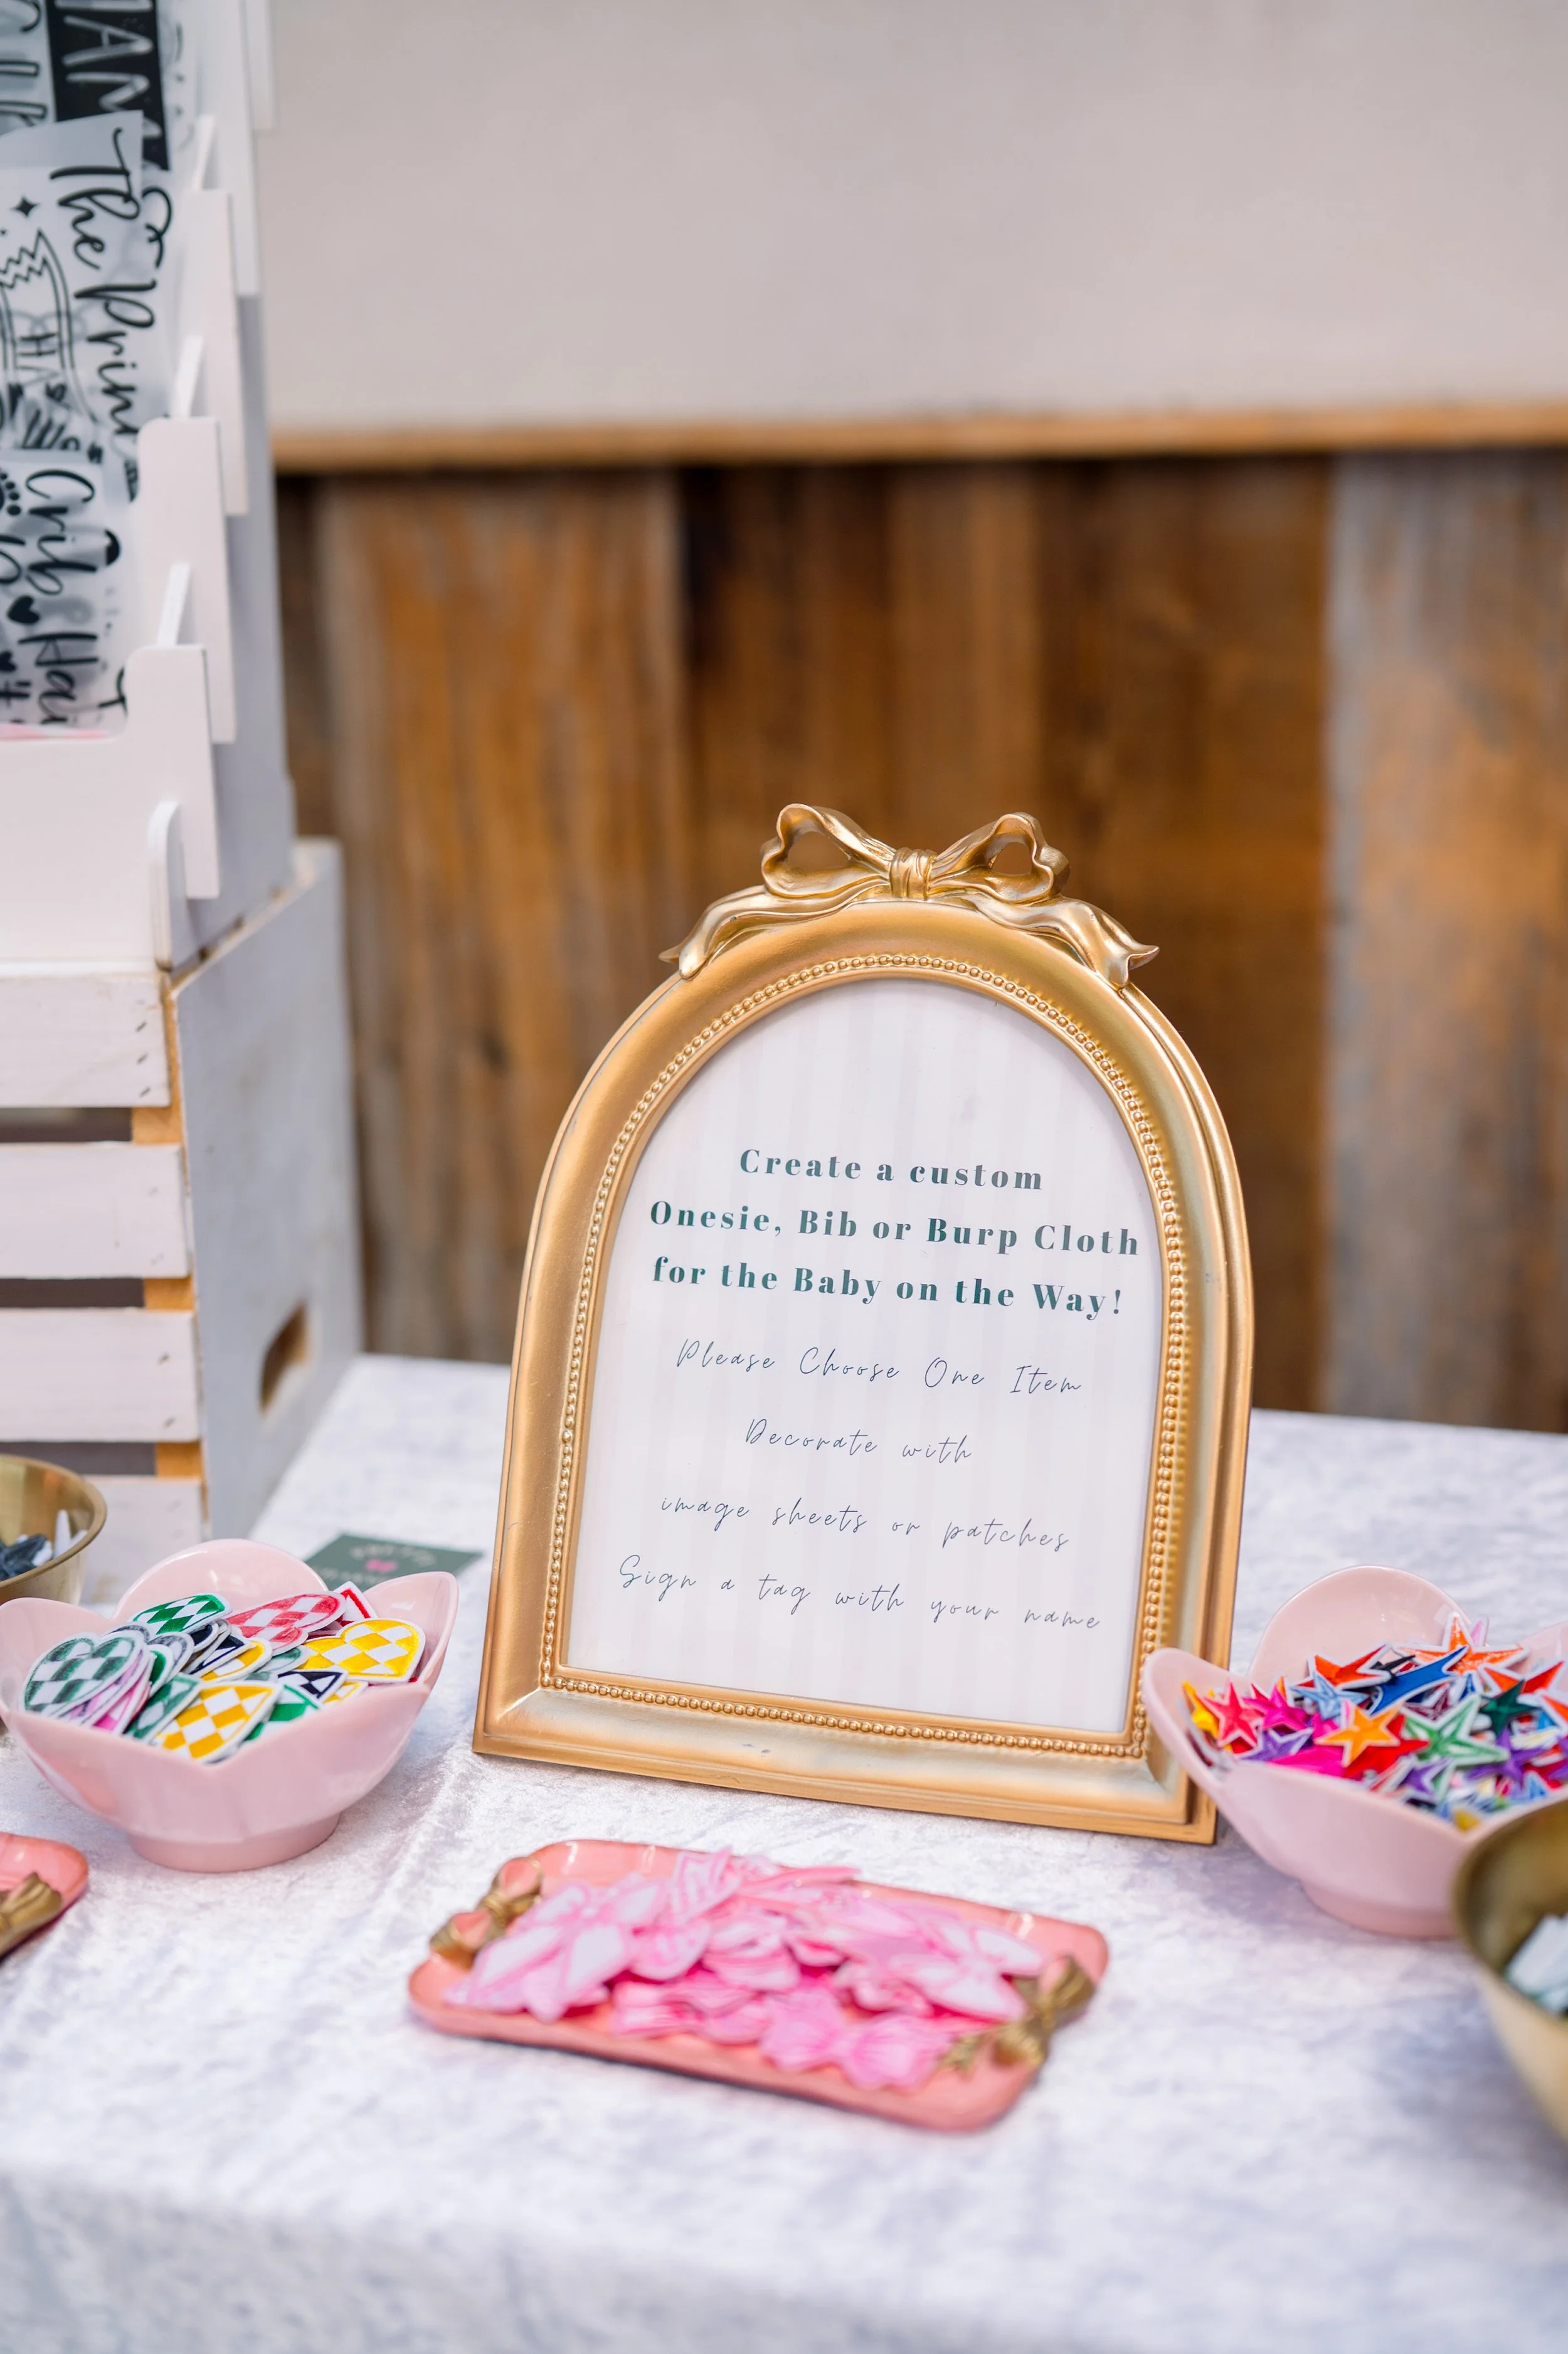 The
Crib
HA
Create a custom
Onesie, Bib or Burp Cloth
for the Baby on the Way!
Please Choose One Item
Decorate with
image sheets or patches
Sign a tag with your name